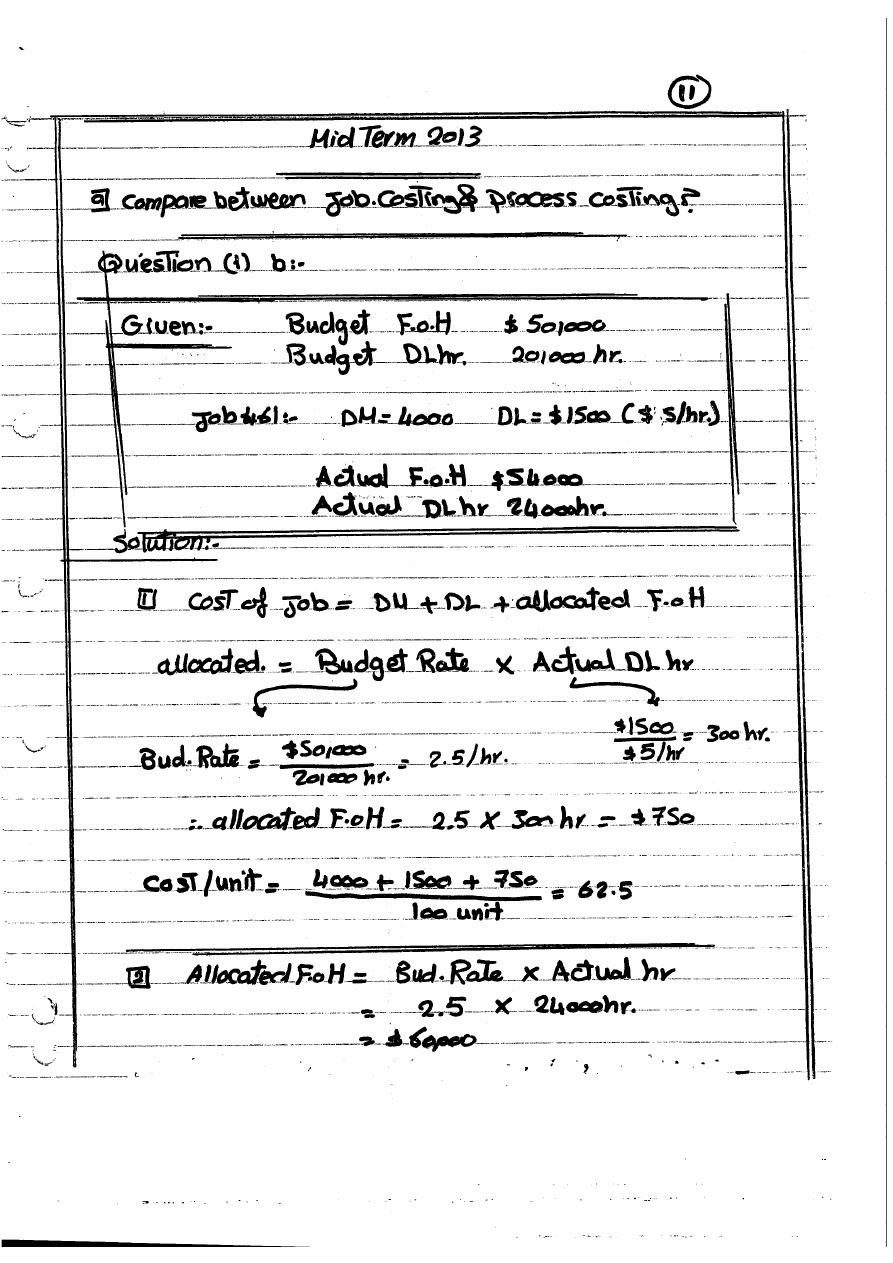 11
Mid Term 2013
a] Compare between Job.Costing & process costing?
Question (1) b:-
Given:- Budget F.o.H $ 50,000
Budget DLhr. 20,000 hr.
Job 461:- DM = 4000 DL = $1500 ($ 5/hr.)
Actual F.o.H $54000
Actual DLhr 24000hr.
Solution:-
1 Cost of Job = DM + DL + allocated F.oH
allocated. = Budget Rate × Actual DL hr
$1500 / $5/hr = 300 hr.
Bud.Rate = $50,000 / 20,000 hr. = 2.5/hr.
∴ allocated F.oH = 2.5 × 300 hr = $750
Cost/unit = 4000 + 1500 + 750 / 100 unit = 62.5
2 Allocated F.oH = Bud.Rate × Actual hr
= 2.5 × 24000hr.
= $60,000